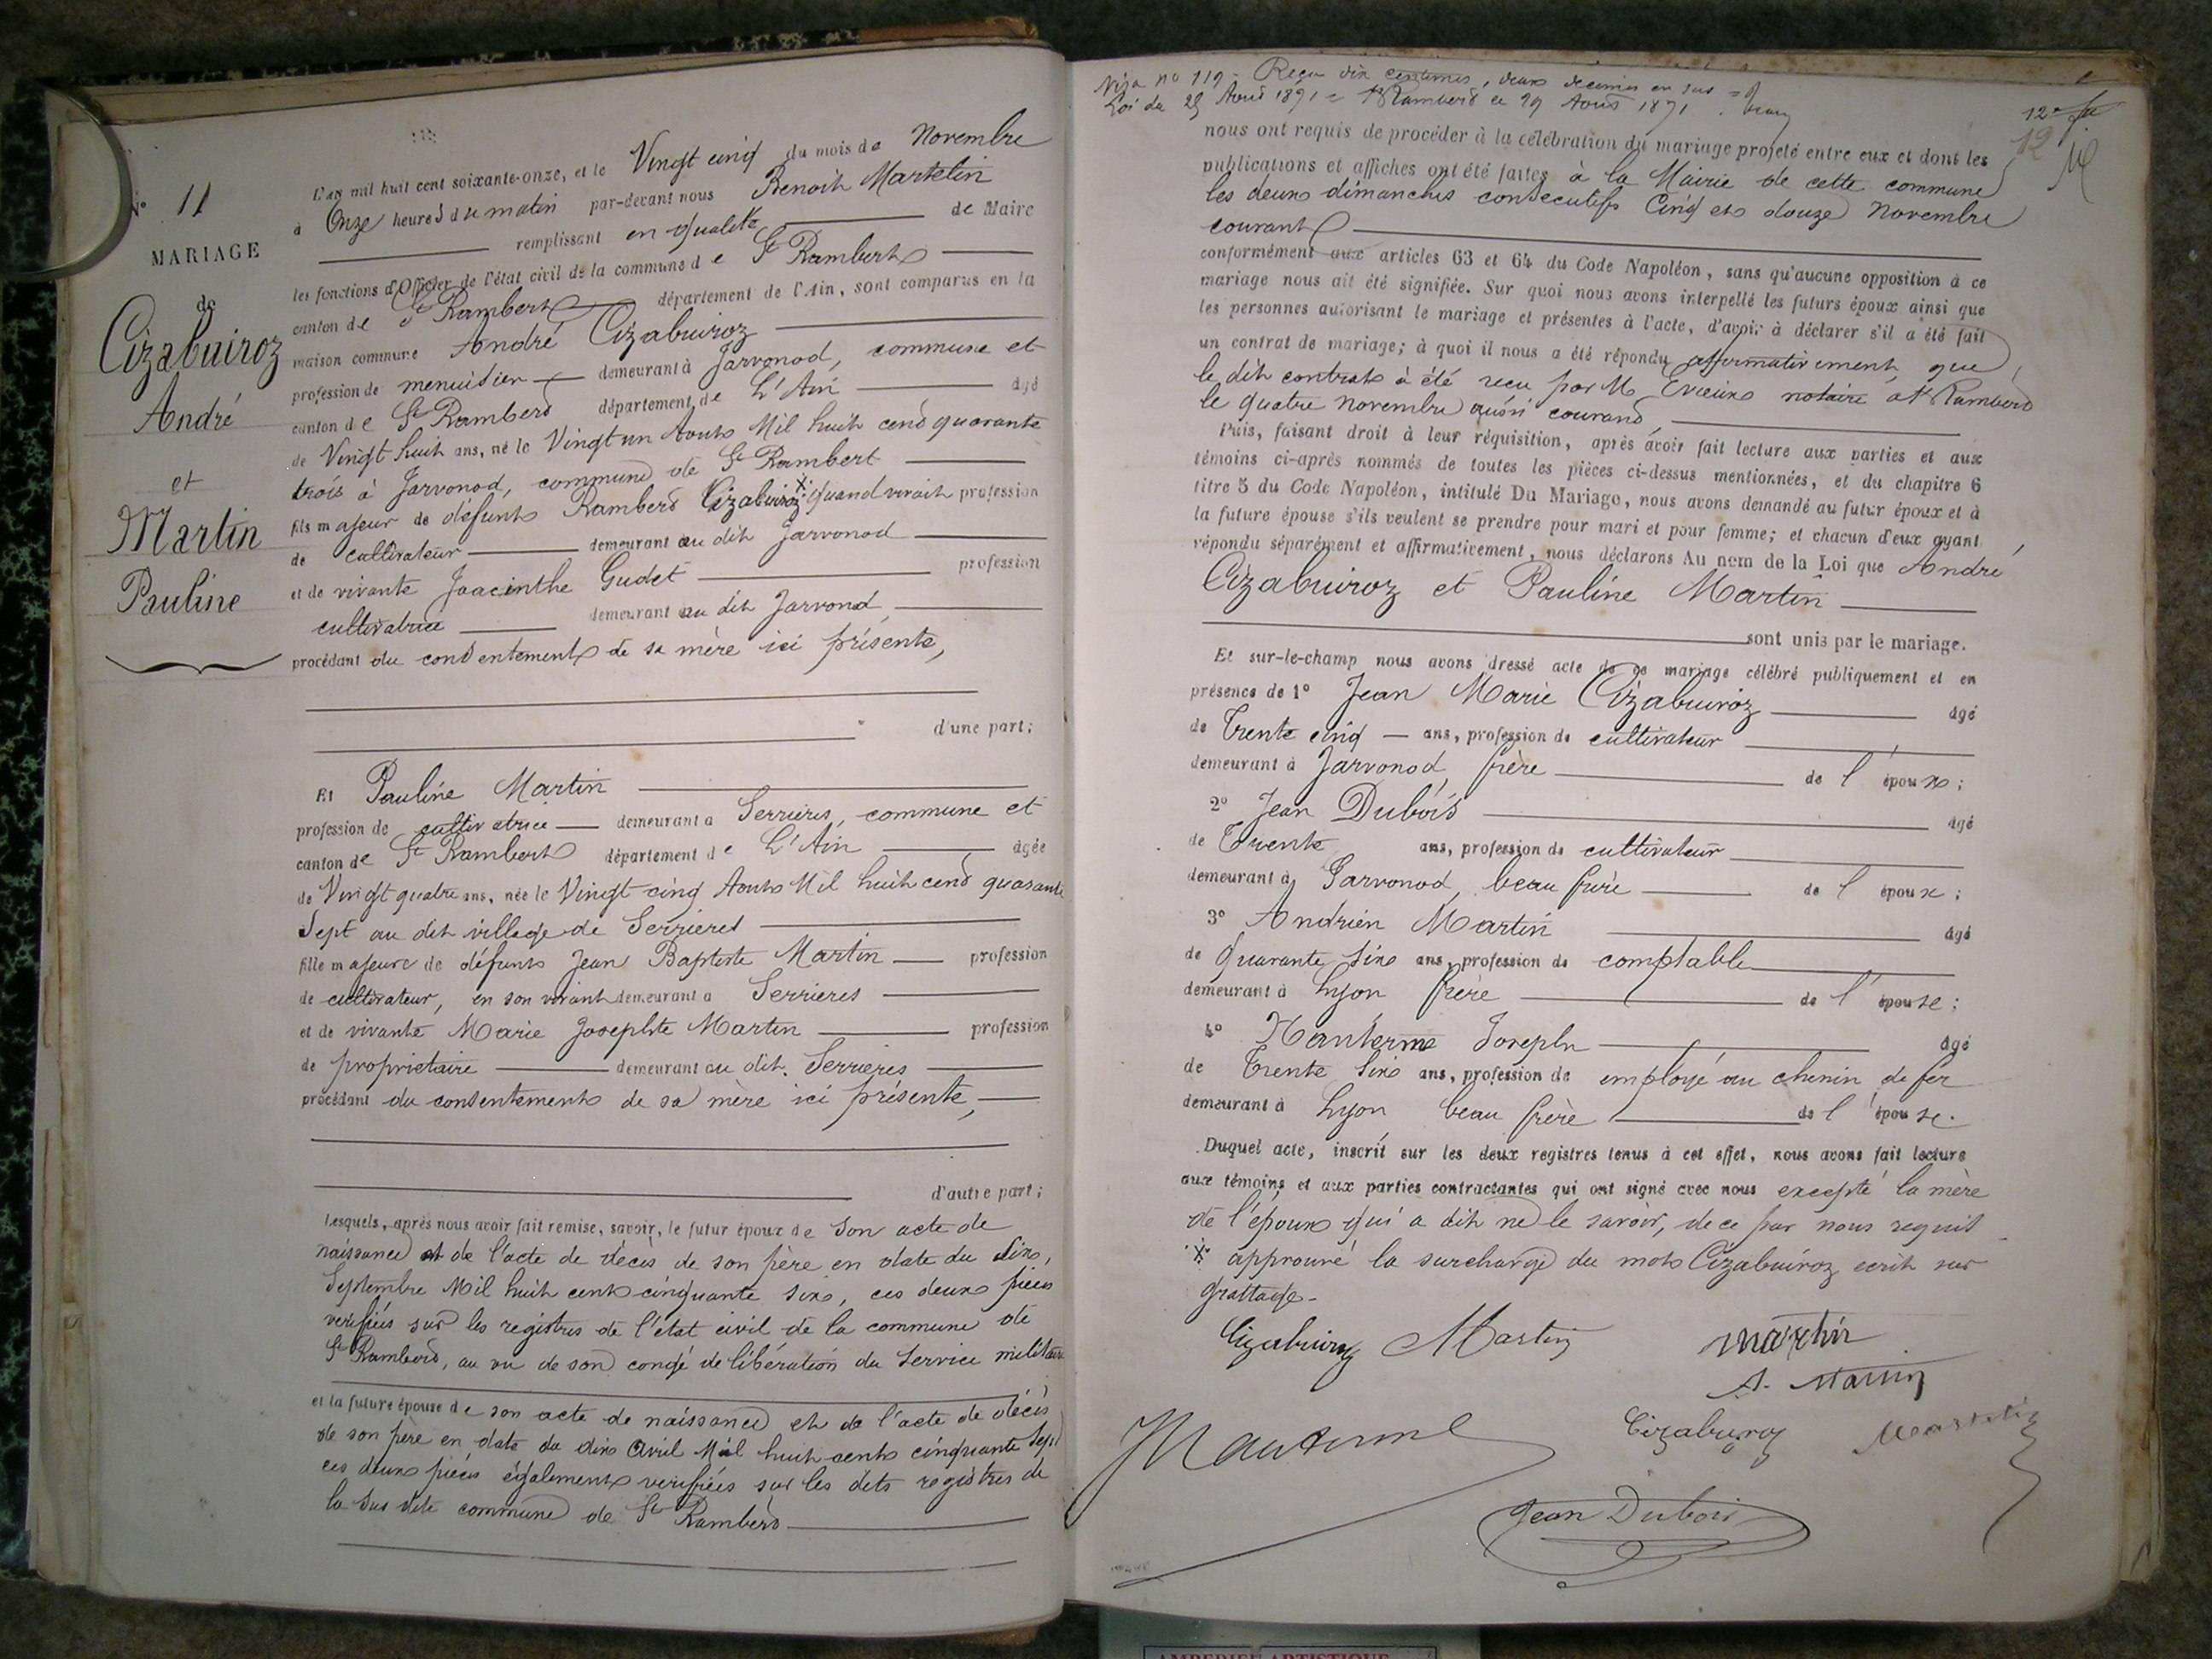 N° 11
MARIAGE
de
Cizabuiroz
André
et
Martin
Pauline
L'an mil huit cent soixante-onze, et le Vingt cinq du mois de Novembre
à Onze heures du matin par-devant nous Benoit Martelin
remplissant en qualité de Maire
les fonctions d'Officier de l'état civil de la commune de St Rambert
canton de St Rambert département de l'Ain, sont comparus en la
maison commune André Cizabuiroz
profession de menuisier demeurant à Javonod, commune et
canton de St Rambert département de L'Ain âgé
de Vingt huit ans, né le Vingt un Août Mil huit cent quarante
trois à Javonod, commune de St Rambert
fils majeur de défunt Rambert Cizabuiroz X quand vivait profession
de cultivateur demeurant au dit Javonod
et de vivante Jaacinthe Gudet profession
cultivatrice demeurant au dit Javonod
procédant du consentement de sa mère ici présente,
d'une part;
Et Pauline Martin
profession de cultivatrice demeurant a Serrières, commune et
canton de St Rambert département de L'Ain âgée
de Vingt quatre ans, née le Vingt cinq Août Mil huit cent quarante
Sept au dit village de Serrières
fille majeure de défunt Jean Baptiste Martin profession
de cultivateur, en son vivant demeurant a Serrières
et de vivante Marie Josephte Martin profession
de proprietaire demeurant au dit Serrières
procédant du consentement de sa mère ici présente,
d'autre part;
Lesquels, après nous avoir fait remise, savoir, le futur époux de son acte de
naissance et de l'acte de décès de son père en date du Six,
Septembre Mil huit cent cinquante six, ces deux pièces
verifiées sur les registres de l'état civil de la commune de
St Rambert, au vu de son congé de libération du Service militaire
et la future épouse de son acte de naissance et de l'acte de décès
de son père en date du dix Avril Mil huit cent cinquante Sept
ces deux pièces également verifiées sur les dits registres de
la sus dite commune de St Rambert
Visa no 119 - Reçu dix centimes, deux decimes en sus
Loi du 23 Août 1871 = St Rambert le 29 Août 1871
12
12
nous ont requis de procéder à la célébration du mariage projeté entre eux et dont les
publications et affiches ont été faites à la Mairie de cette commune
les deux dimanches consecutifs Cinq et douze Novembre
courant
conformément aux articles 63 et 64 du Code Napoléon, sans qu'aucune opposition à ce
mariage nous ait été signifiée. Sur quoi nous avons interpellé les futurs époux ainsi que
les personnes autorisant le mariage et présentes à l'acte, d'avoir à déclarer s'il a été fait
un contrat de mariage; à quoi il nous a été répondu affirmativement, que
le dit contrat à été reçu par Me notaire à St Rambert
le quatre novembre aussi courant,
Puis, faisant droit à leur réquisition, après avoir fait lecture aux parties et aux
témoins ci-après nommés de toutes les pièces ci-dessus mentionnées, et du chapitre 6
titre 5 du Code Napoléon, intitulé Du Mariage, nous avons demandé au futur époux et à
la future épouse s'ils veulent se prendre pour mari et pour femme; et chacun d'eux ayant
répondu séparément et affirmativement, nous déclarons Au nom de la Loi que André
Cizabuiroz et Pauline Martin
sont unis par le mariage.
Et sur-le-champ nous avons dressé acte de ce mariage célébré publiquement et en
présence de 1° Jean Marie Cizabuiroz âgé
de Trente cinq ans, profession de cultivateur
demeurant à Javonod, frère de l'époux;
2° Jean Dubois âgé
de Trente ans, profession de cultivateur
demeurant à Javonod, beau frère de l'époux;
3° Andrien Martin âgé
de quarante six ans, profession de comptable
demeurant à Lyon frère de l'épouse;
4° Manterme Joseph âgé
de Trente Six ans, profession de employé au chemin de fer
demeurant à Lyon beau frère de l'épouse.
Duquel acte, inscrit sur les deux registres tenus à cet effet, nous avons fait lecture
aux témoins et aux parties contractantes qui ont signé avec nous excepté la mère
de l'époux qui a dit ne le savoir, de ce par nous requit
X approuvé la surcharge du mot Cizabuiroz ecrit sur
grattage.
Cizabuiroz Martin Martin
A. Martin
Manterme Cizabuiroz Martelin
Jean Dubois
AMBERIEU ARTISTIQUE